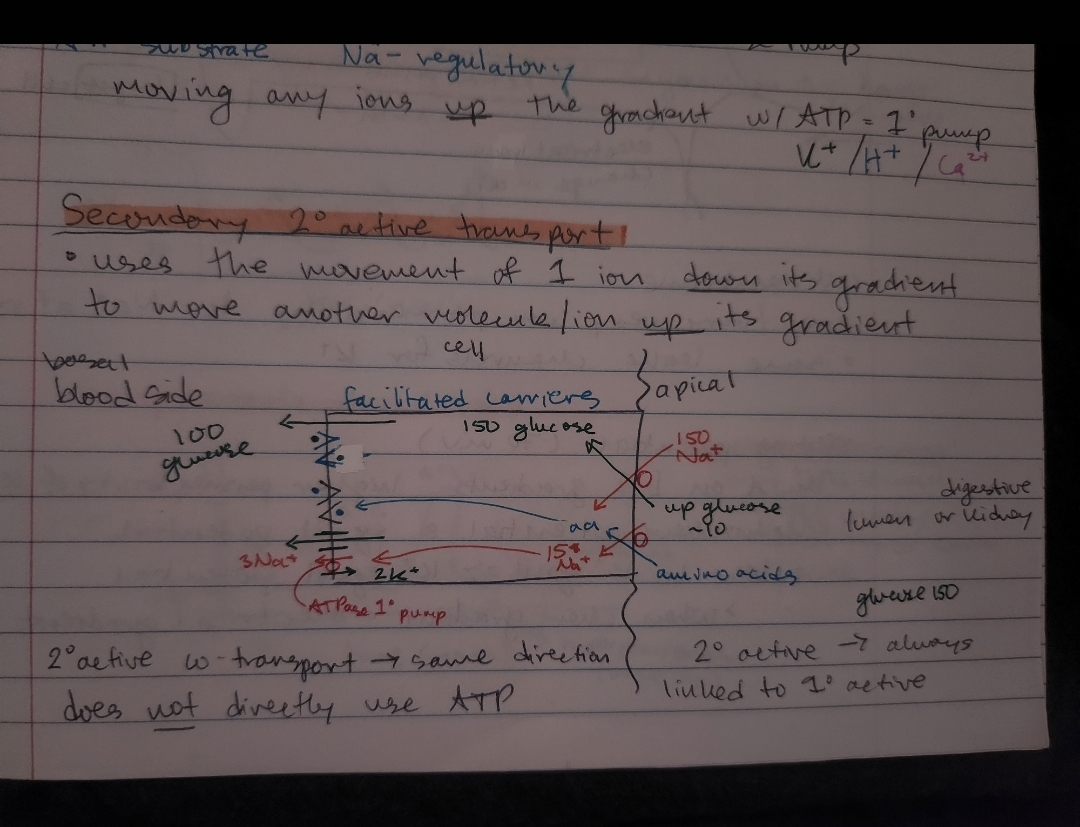 substrate Na- regulatory
pump
moving any ions up the gradient w/ ATP = 1° pump
K+ / H+ / Ca2+
Secondary 2° active transport
• uses the movement of 1 ion down its gradient
to move another molecule/ion up its gradient
cell
basal
blood side
facilitated carriers
apical
100
glucose
150 glucose
150
Na+
up glucose
~10
digestive
lumen or kidney
aa
3Na+
15
Na+
2K+
amino acids
ATPase 1° pump
glucose 150
2° active co-transport → same direction
does not directly use ATP
2° active → always
linked to 1° active